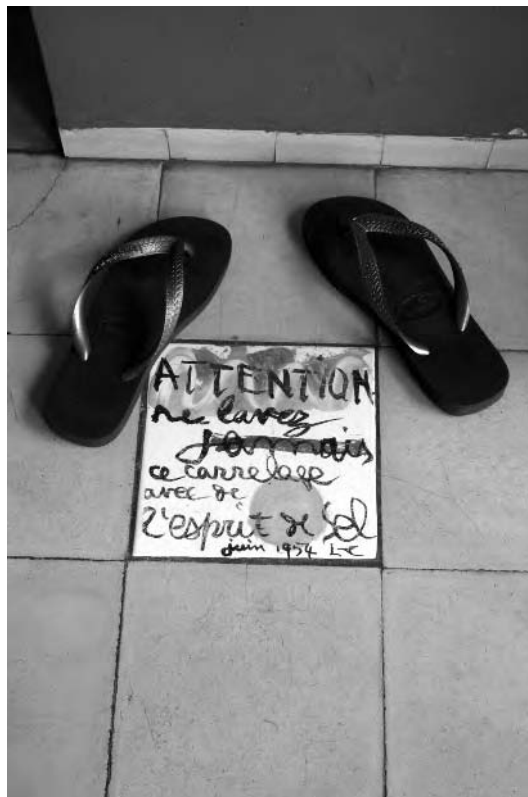 ATTENTION
ne lavez
jamais
ce carrelage
avec de
L'esprit de Sel
juin 1954 L-C